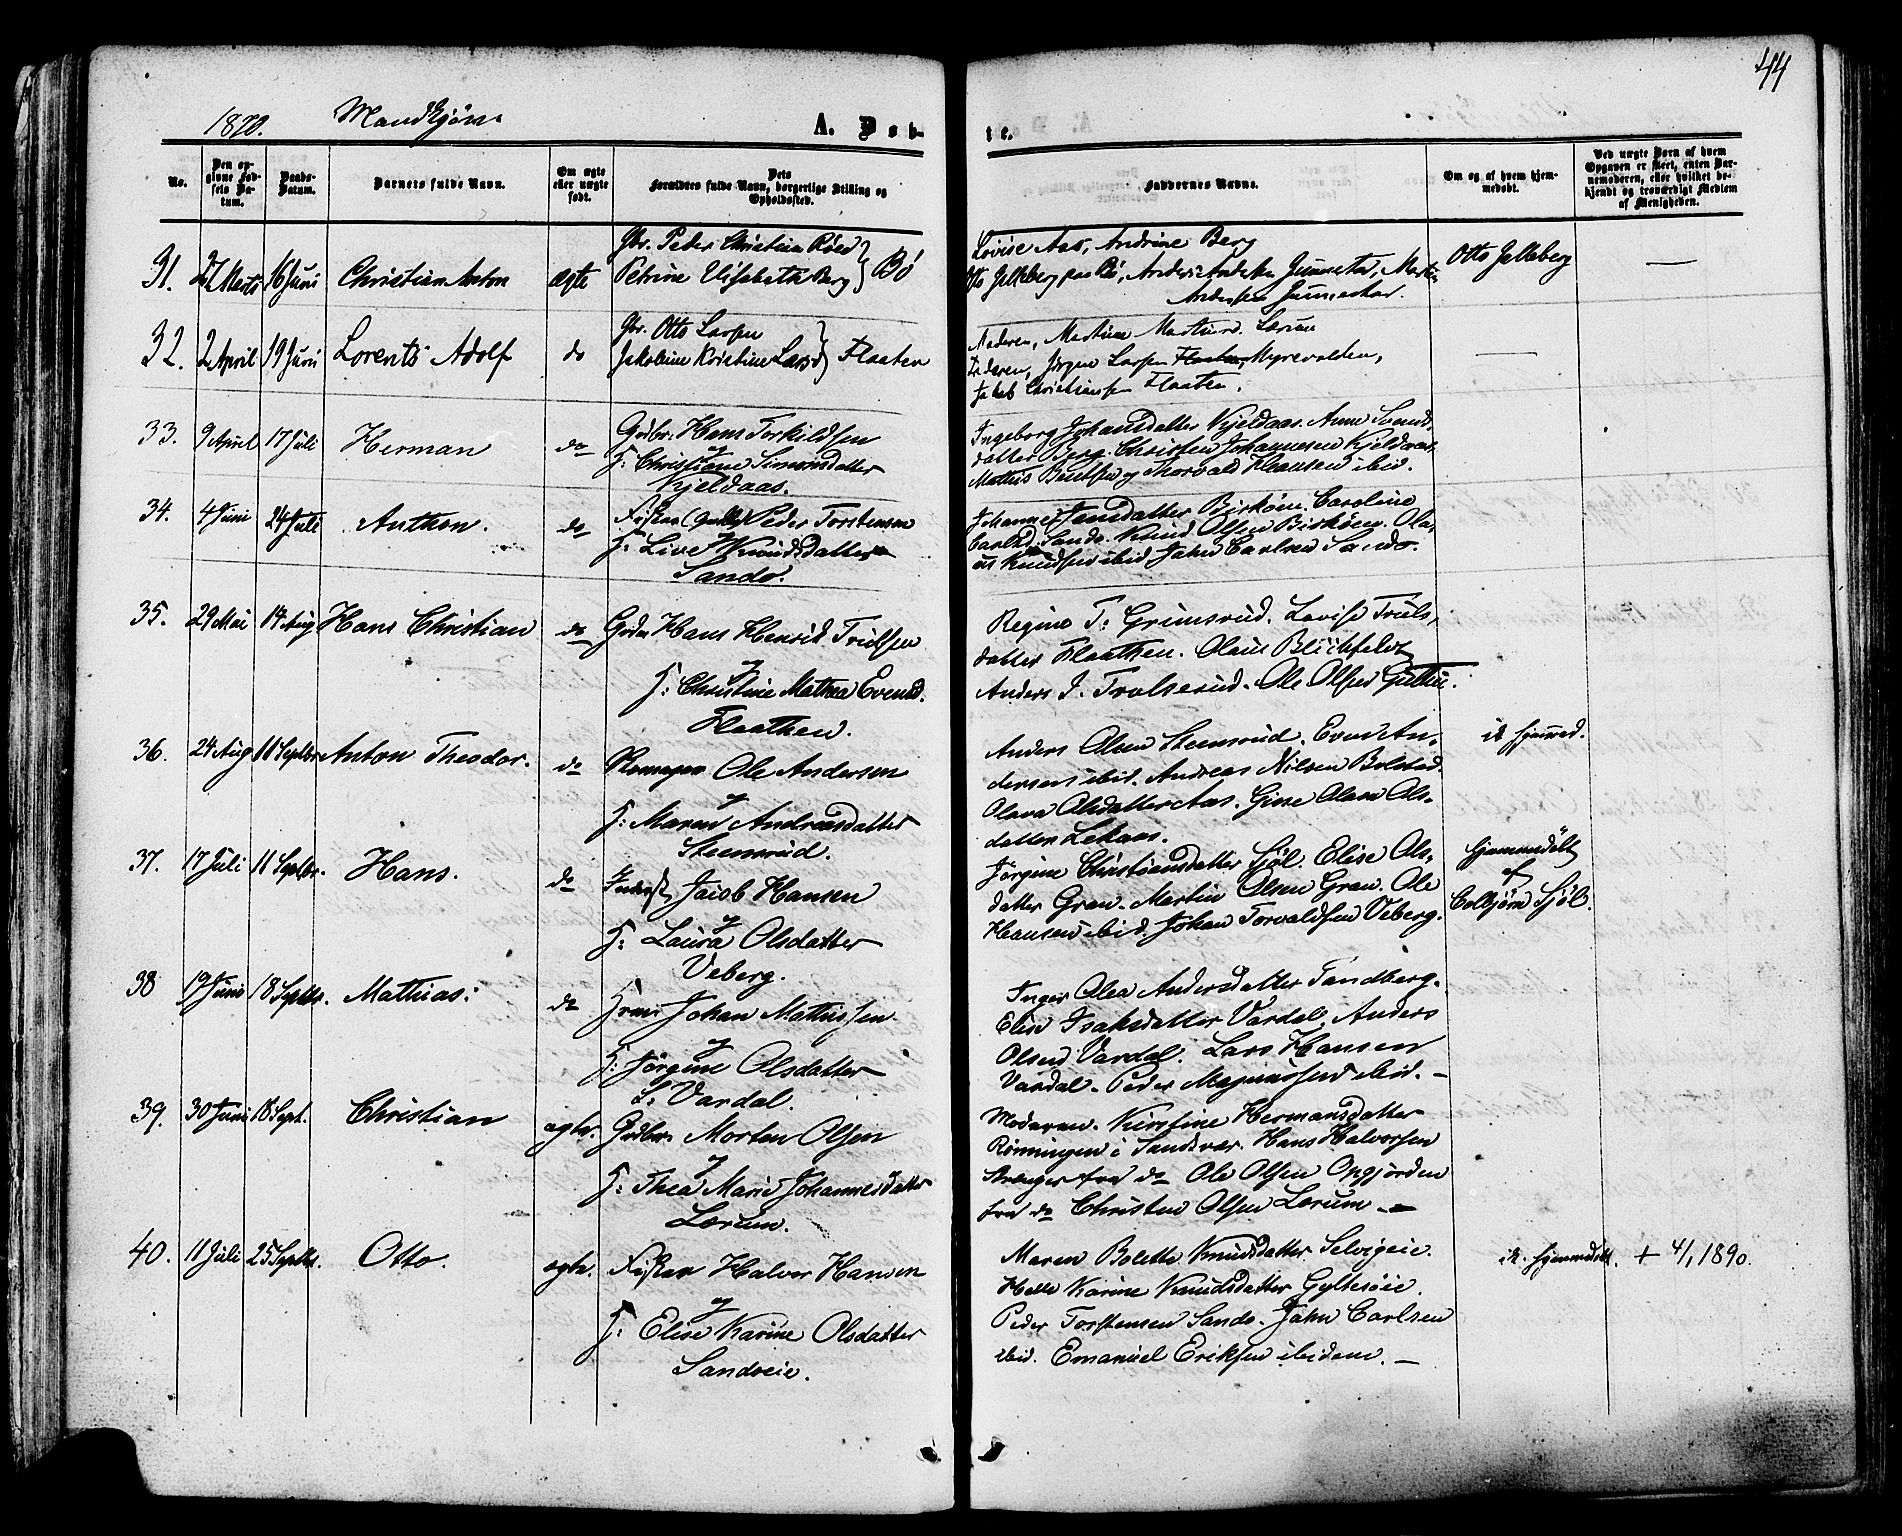 44
1870. Mandkjøn.
A. Døbte.
No.
Den opgivne Fødsels Datum.
Daabs-Datum.
Barnets fulde Navn.
Om ægte eller uægte født.
Dets Forældres fulde Navn, borgerlige Stilling og Opholdssted.
Faddernes Navne.
Om og af hvem hjemmedøbt.
Ved uægte Børn af hvem Opgaven er skeet, enten Barnemoderen, eller hvilket bekjendt og troværdigt Medlem af Menigheden.
31. 27 Marts 16 Juni Christian Anton ægte
Gbr. Peder Christian Röed
Petrine Elisabeth Berg } Bö
Lovise Aas, Andrine Berg
Otto Jelleberg paa Bö, Anders Andersen Gunnestad, Martin
Andersen Gunnestad.
Otto Jelleberg —
32. 2 April 19 Juni Lorents Adolf do
Gbr. Otto Larsen
Jakobine Kristine Larsd } Flaaten
Moderen, Martine Mathisd. Lærum
Faderen, Jörgen Larsen Flaaten, Myrevolden,
Jakob Christiansen Flaaten.
—
33. 9 April 17 Juli Herman do
Gbr. Hans Torkildsen
og
H: Christiane Simensdatter
Kjeldaas.
Ingeborg Johansdatter Kjeldaas. Anne Svends-
datter Berg. Christen Johannesen Kjeldaas.
Mathis Bentsen og Thorvald Hansen ibid.
34. 4 Juni 24 Juli Anthon. do
Fisker Peder Torstensen
H: Live Knudsdatter
Sandö.
Johanne Jensdatter Birköen. Caroline
Carlsd. Sandö. Knud Olsen Birköen. Ola-
us Knudsen ibid. John Carlsen Sandö.
35. 29 Mai 14 Aug Hans Christian do
Gbr. Hans Henrik Trulsen
og
H: Christine Mathea Evensd.
Flaathen.
Regine T: Grimsrud. Lovise Truls-
datter Flaathen. Olaus Blichfeldt
Anders J. Trolserud. Ole Olsen Guttu.
36. 24 Aug 11 Septbr. Anton Theodor. do
Ole Andersen
og
H: Maren Andreasdatter
Steensrud.
Anders Olsen Steensrud. Even An-
dersen ibid. Andreas Nilsen Bolstad.
Olava Olsdatter Aas. Gine Olava Ols-
datter Lekaas.
ik hjemmed.
37. 17 Juli 11 Septbr. Hans. do
Inderst Jacob Hansen
og
H: Laura Olsdatter
Veberg.
Jörgine Christiansdatter Sjöl. Elise Ols-
datter Gran. Martin Olsen Gran. Ole
Hansen ibid. Johan Torvaldsen Veberg.
Hjemmedöbt
af
Colbjörn Sjöl.
38 19 Juni 18 Septbr. Mathias: do
Johan Mathissen
og
H: Jörgine Olsdatter
S. Vardal.
Inger Olea Andersdatter Sandberg.
Elise Isaksdatter Vardal. Anders
Olsen Vardal. Lars Hansen
Vardal. Peder Magnussen ibid. —
39. 30 Juni 18 Sept. Christian ægte.
Gbr. Morten Olsen
og
H: Thea Marie Johannesdatter
Lærum.
Moderen. Kirstine Hermansdatter
Rönningen i Sandsvær. Hans Halvorsen
Stranger fra do Ole Olsen Opgjorden
fra do Christen Olsen Lærum —
40. 11 Juli 25 Septbr. Otto. ægte.
Fisker Halvor Hansen
og
H: Elise Karine Olsdatter
Sandöeie.
Maren Bolette Knudsdatter Selvigeie.
Helle Karine Knudsdatter Gyltesöeie.
Peder Torstensen Sandö. John Carlsen
ibid. Emanuel Eriksen ibidem. —
ik. hjemmedöbt. + 4/1 1890.